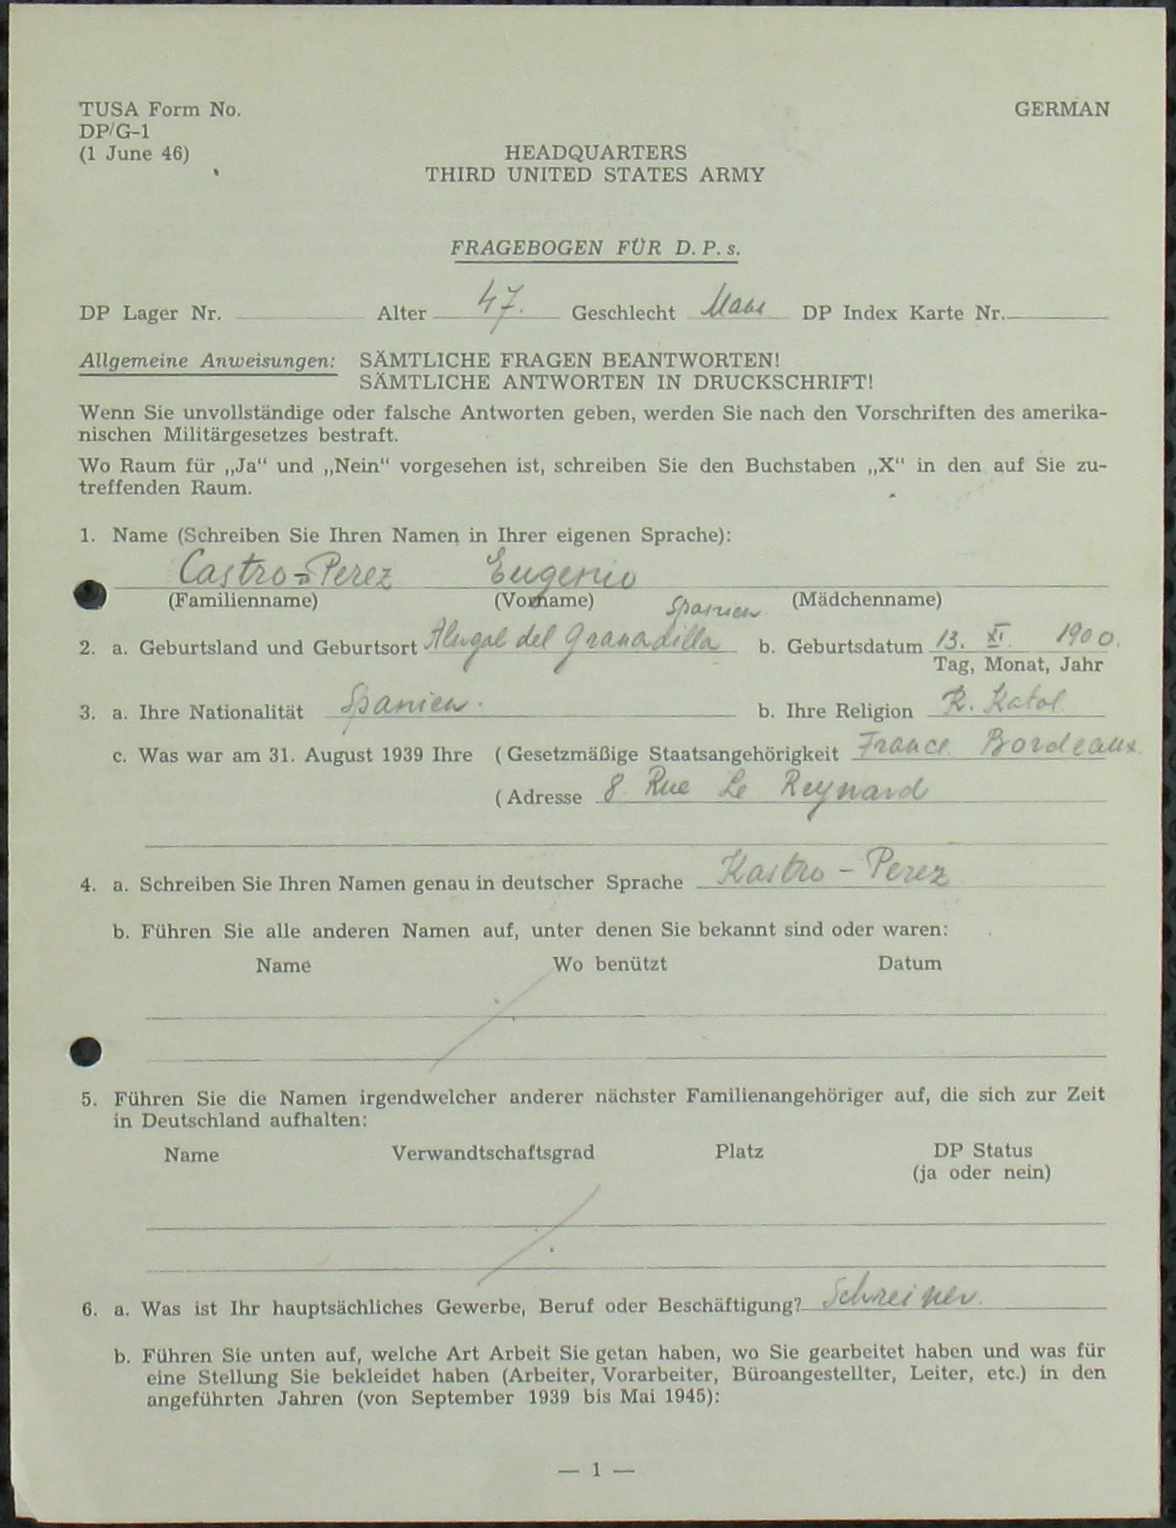 TUSA Form No. GERMAN
DP/G-1
(1 June 46) HEADQUARTERS
THIRD UNITED STATES ARMY
FRAGEBOGEN FÜR D. P. s.
DP Lager Nr. Alter 47. Geschlecht DP Index Karte Nr.
Allgemeine Anweisungen: SÄMTLICHE FRAGEN BEANTWORTEN!
SÄMTLICHE ANTWORTEN IN DRUCKSCHRIFT!
Wenn Sie unvollständige oder falsche Antworten geben, werden Sie nach den Vorschriften des amerika-
nischen Militärgesetzes bestraft.
Wo Raum für „Ja“ und „Nein“ vorgesehen ist, schreiben Sie den Buchstaben „X“ in den auf Sie zu-
treffenden Raum.
1. Name (Schreiben Sie Ihren Namen in Ihrer eigenen Sprache):
Castro-Perez Eugenio
(Familienname) (Vorname) (Mädchenname)
Spanien
2. a. Geburtsland und Geburtsort del Granadilla b. Geburtsdatum 13. XI. 1900.
Tag, Monat, Jahr
3. a. Ihre Nationalität Spanien. b. Ihre Religion R. Katol
c. Was war am 31. August 1939 Ihre (Gesetzmäßige Staatsangehörigkeit France Bordeaux
(Adresse 8 Rue Le Reynard
4. a. Schreiben Sie Ihren Namen genau in deutscher Sprache Kastro - Perez
b. Führen Sie alle anderen Namen auf, unter denen Sie bekannt sind oder waren:
Name Wo benützt Datum
5. Führen Sie die Namen irgendwelcher anderer nächster Familienangehöriger auf, die sich zur Zeit
in Deutschland aufhalten:
Name Verwandtschaftsgrad Platz DP Status
(ja oder nein)
6. a. Was ist Ihr hauptsächliches Gewerbe, Beruf oder Beschäftigung? Schreiner.
b. Führen Sie unten auf, welche Art Arbeit Sie getan haben, wo Sie gearbeitet haben und was für
eine Stellung Sie bekleidet haben (Arbeiter, Vorarbeiter, Büroangestellter, Leiter, etc.) in den
angeführten Jahren (von September 1939 bis Mai 1945):
— 1 —